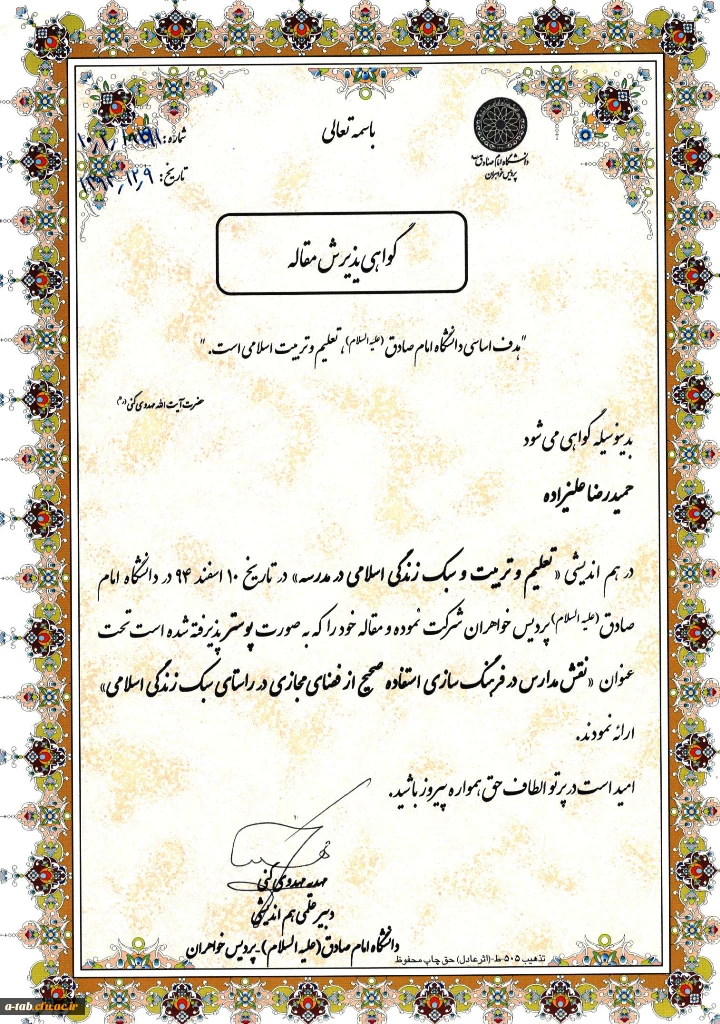 باسمه تعالی
دانشگاه امام صادق
پردیس خواهران
شماره:
تاریخ:
گواهی پذیرش مقاله
"هدف اساسی دانشگاه امام صادق (علیه السلام)، تعلیم و تربیت اسلامی است."
حضرت آیت الله مهدوی کنی (ره)
بدینوسیله گواهی می شود
حمیدرضا علیزاده
در هم اندیشی «تعلیم و تربیت و سبک زندگی اسلامی در مدرسه» در تاریخ ۱۰ اسفند ۹۴ در دانشگاه امام
صادق (علیه السلام) پردیس خواهران شرکت نموده و مقاله خود را که به صورت پوستر پذیرفته شده است تحت
عنوان «نقش مدارس در فرهنگ سازی استفاده صحیح از فضای مجازی در راستای سبک زندگی اسلامی»
ارائه نمودند.
امید است در پرتو الطاف حق همواره پیروز باشید.
مهدیه مهدوی کنی
دبیر علمی هم اندیشی
دانشگاه امام صادق (علیه السلام)- پردیس خواهران
تذهیب ۵۰۵-ط-(اثر عادل) حق چاپ محفوظ
a-tab.cfu.ac.ir